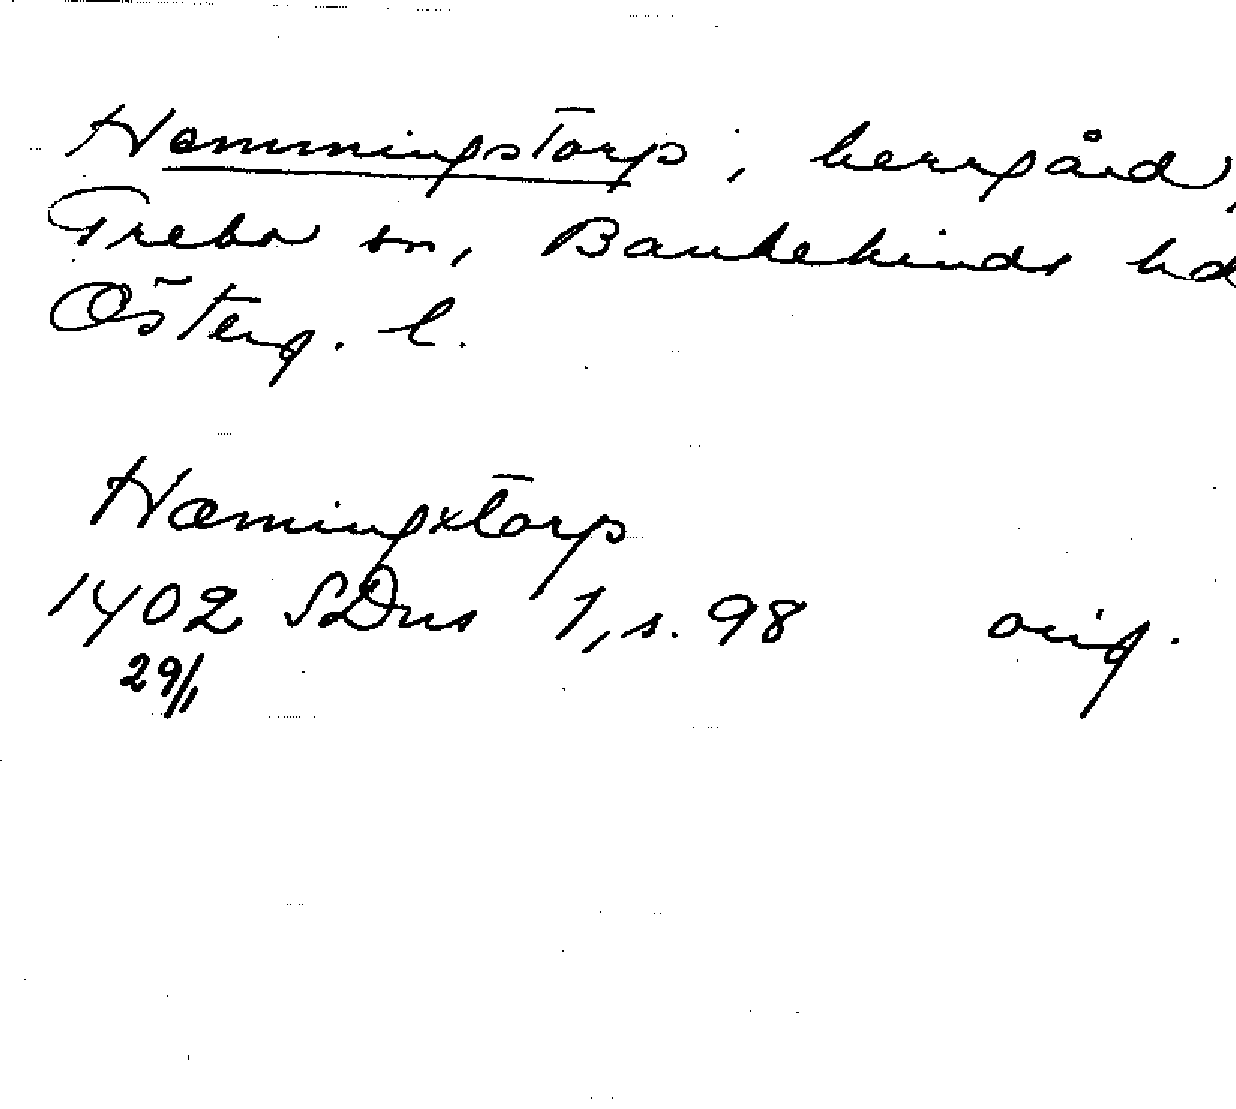 Hemmingstorp, herrgård,
Grebo sn, Bankekinds hd
Österg. l.
Hæmingxtorp
1402 SDns 1, s. 98 orig.
29/1